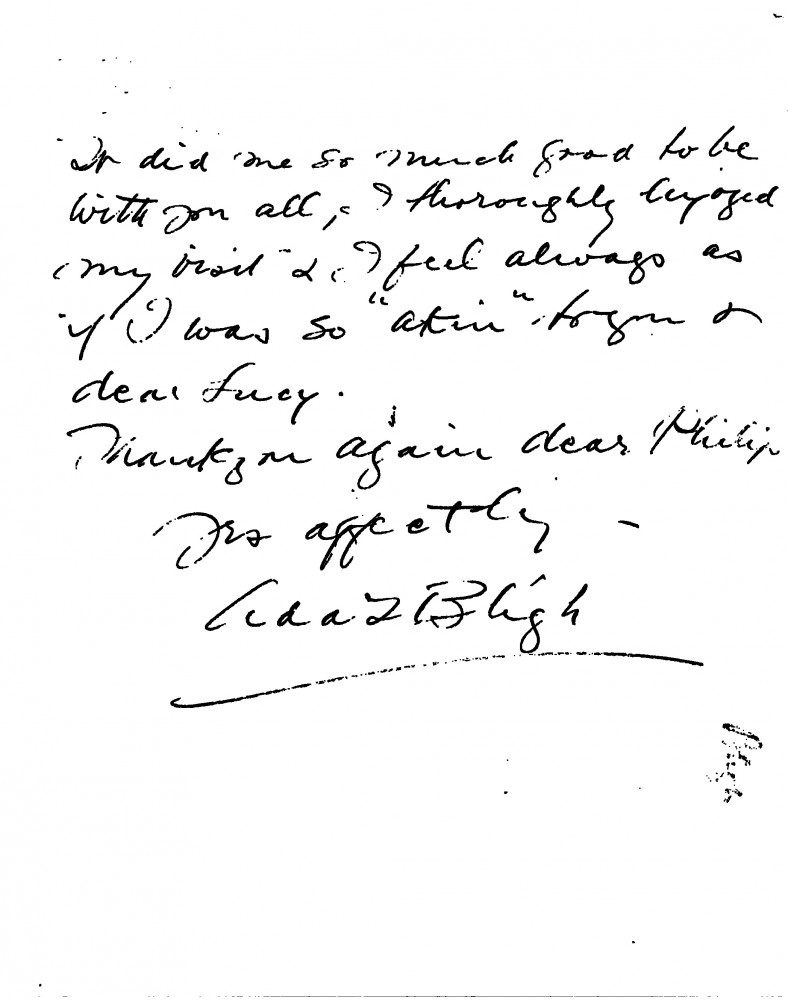 It did me so much good to be
with you all, & I thoroughly enjoyed
my visit & I feel always as
if I was so "akin" to you &
dear Lucy.
Thank you again dear Philip
Yrs affectly
Ada L Bligh
Bligh